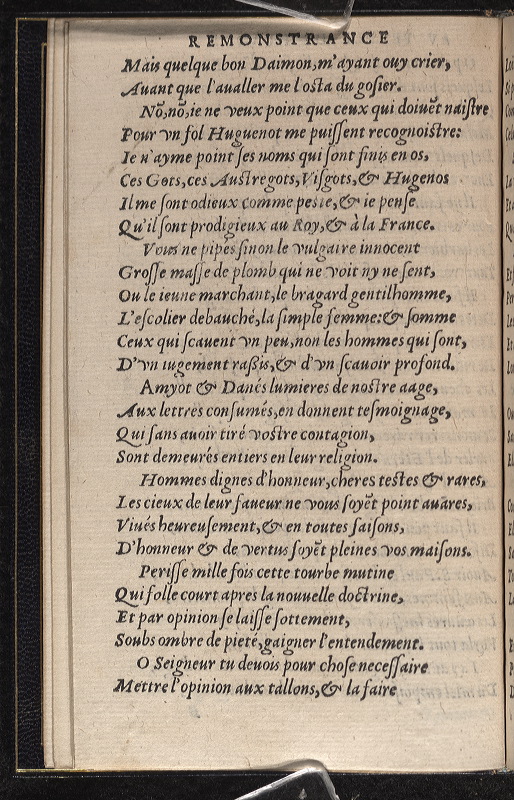 REMONSTRANCE
Mais quelque bon Daimon, m'ayant ouy crier,
Auant que l'aualler me l'osta du gosier.
Nō, nō, ie ne veux point que ceux qui doiuēt naistre
Pour vn fol Huguenot me puissent recognoistre:
Ie n'ayme point ses noms qui sont finis en os,
Ces Gots, ces Austregots, Visgots, & Hugenos
Il me sont odieux comme peste, & ie pense
Qu'il sont prodigieux au Roy, & à la France.
Vous ne pipés sinon le vulgaire innocent
Grosse masse de plomb qui ne voit ny ne sent,
Ou le ieune marchant, le bragard gentilhomme,
L'escolier debauché, la simple femme: & somme
Ceux qui scauent vn peu, non les hommes qui sont,
D'vn iugement rassis, & d'vn scauoir profond.
Amyot & Danés lumieres de nostre aage,
Aux lettres consumés, en donnent tesmoignage,
Qui sans auoir tiré vostre contagion,
Sont demeurés entiers en leur religion.
Hommes dignes d'honneur, cheres testes & rares,
Les cieux de leur faueur ne vous soyēt point auares,
Viués heureusement, & en toutes saisons,
D'honneur & de vertus soyēt pleines vos maisons.
Perisse mille fois cette tourbe mutine
Qui folle court apres la nouuelle doctrine,
Et par opinion se laisse sottement,
Soubs ombre de pieté, gaigner l'entendement.
O Seigneur tu deuois pour chose necessaire
Mettre l'opinion aux tallons, & la faire